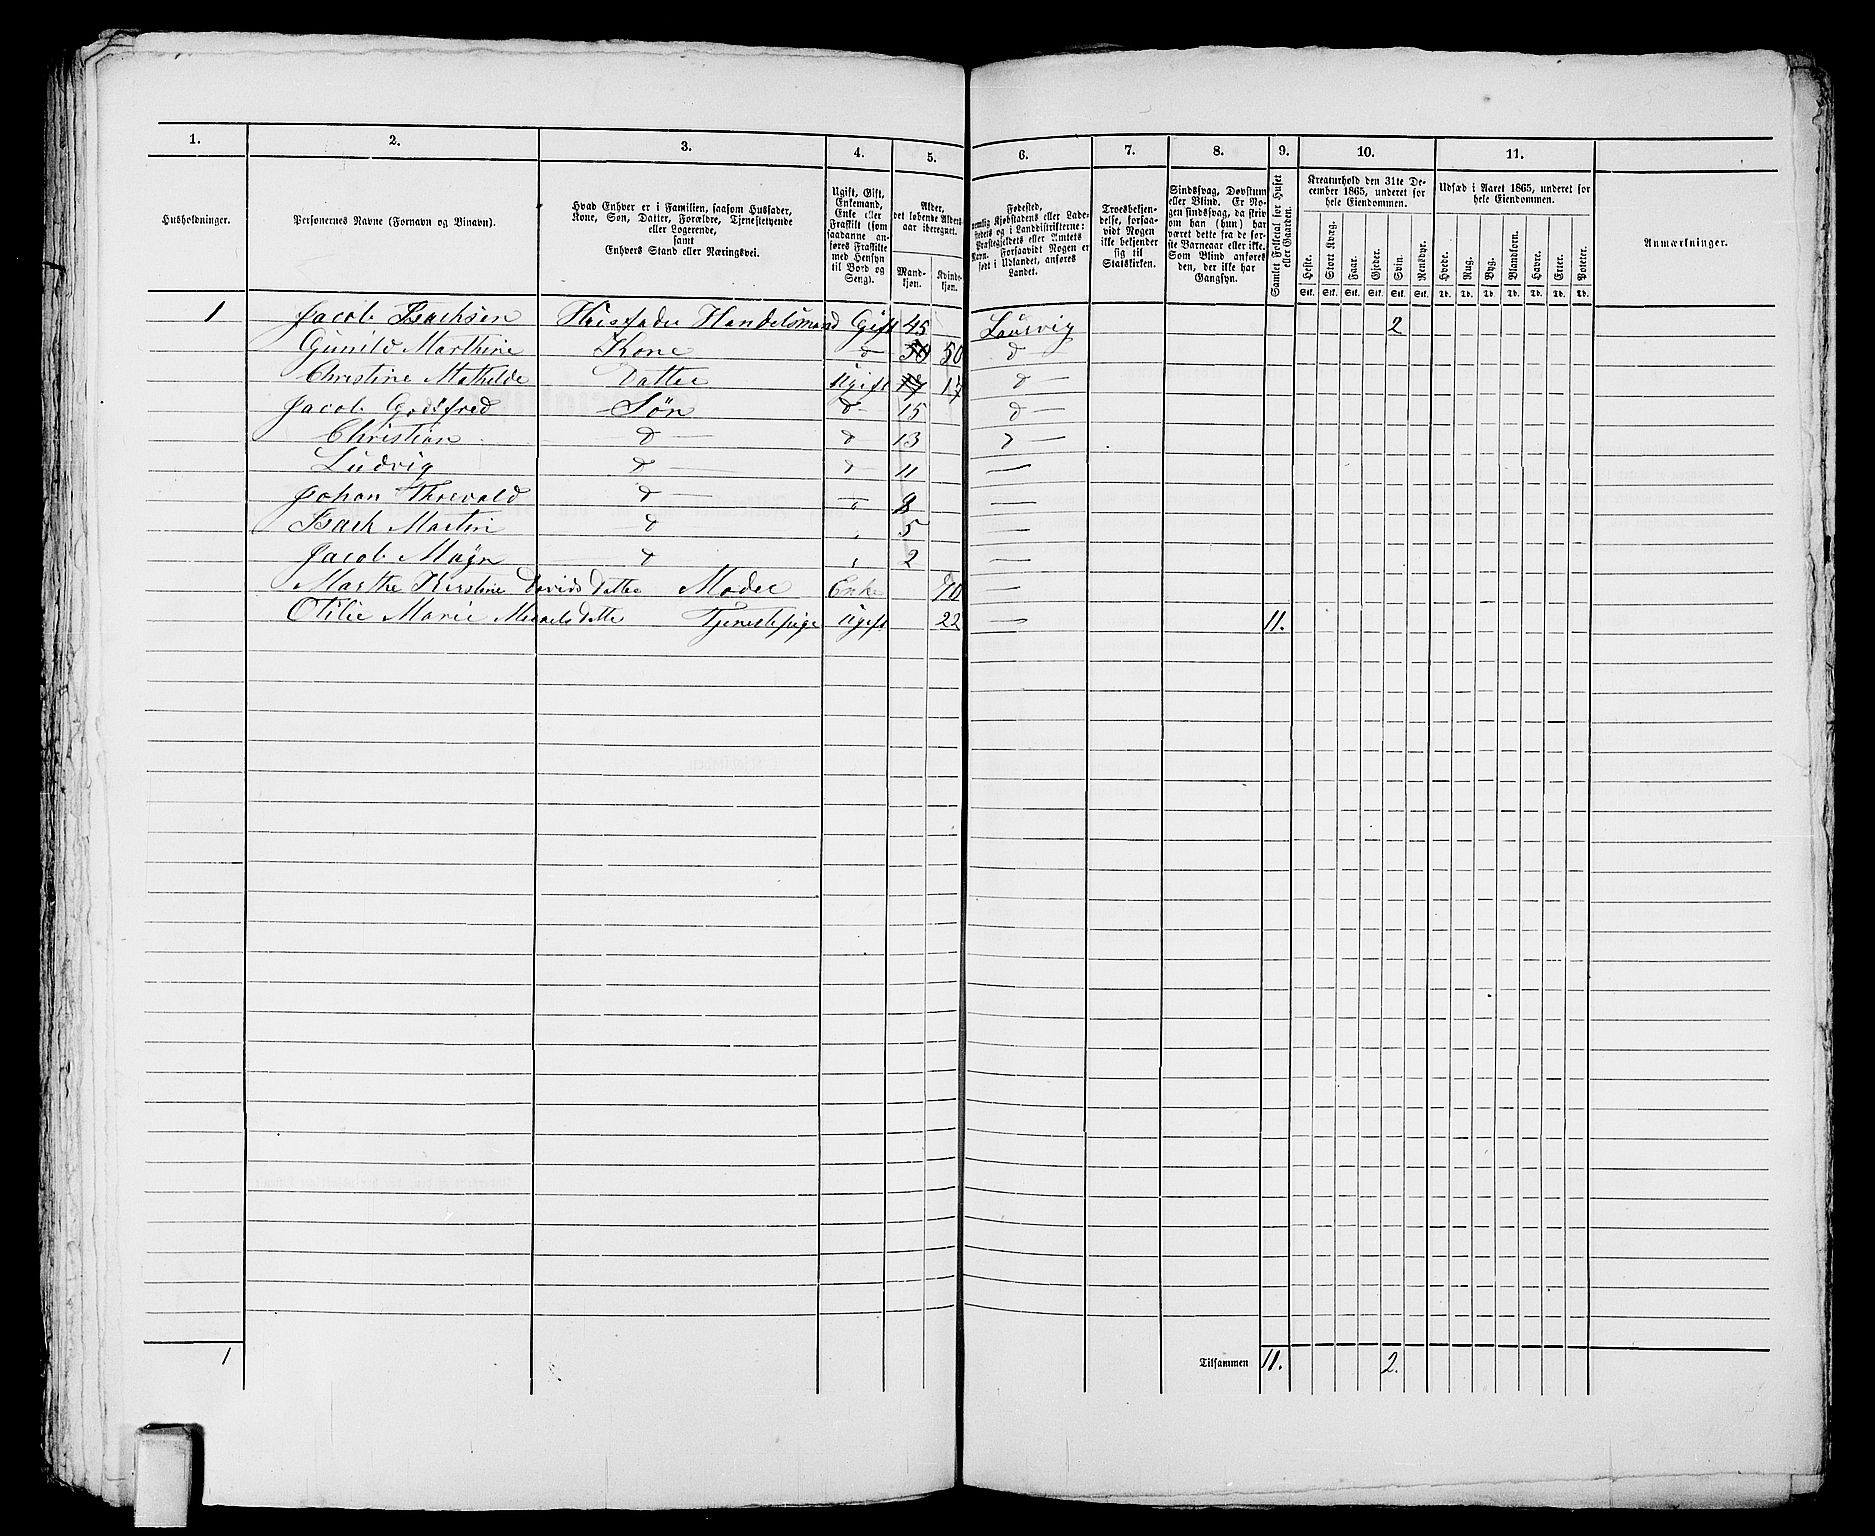 1. 2. 3. 4. 5. 6. 7. 8. 9. 10. 11.
Husholdninger.
Personernes Navne (Fornavn og Binavn).
Hvad Enhver er i Familien, saasom Husfader, Kone, Søn, Datter, Forældre, Tjenestetyende eller Logerende, samt Enhvers Stand eller Næringsvei.
Ugift, Gift, Enkemand, Enke eller Fraskilt (som saadanne anføres Fraskilte med Hensyn til Bord og Seng).
Alder, det løbende Alders-aar iberegnet.
Mand-kjøn. Kvinde-kjøn.
Fødested, nemlig Kjøbstadens eller Ladestedets og i Landdistrikterne: Præstegjeldets eller Amtets Navn. Forsaavidt Nogen er født i Udlandet, anføres Landet.
Troesbekjendelse, forsaavidt Nogen ikke bekjender sig til Statskirken.
Sindssvag, Døvstum eller Blind. Er Nogen sindssvag, da skrives om han (hun) har været dette fra de første Barneaar eller ikke. Som Blind anføres den, der ikke har Gangsyn.
Samlet Folketal for Huset eller Gaarden.
Kreaturhold den 31te December 1865, underet for hele Eiendommen.
Heste. Stort Kvæg. Faar. Gjeder. Svin. Rensdyr.
Stk. Stk. Stk. Stk. Stk. Stk.
Udsæd i Aaret 1865, underet for hele Eiendommen.
Hvede. Rug. Byg. Blandkorn. Havre. Erter. Poteter.
Td. Td. Td. Td. Td. Td. Td.
Anmærkninger.
1 Jacob Isachsen Huusfader Handelsmand Gift 45 Laurvig 2
Gunild Marthine Kone d 50 50 d
Christine Mathilde Datter Ugift 17 17 d
Jacob Godtfred Søn d 15 d
Christian d d 13 d
Ludvig d d 11 —
Johan Thorvald d d —
Isach Martin d 5 —
Jacob Magn d 2 —
Marthe Kirstine Davids Datter Moder Enke 70 —
Otilie Marie Datter Tjenestepige Ugift 22 — 11.
1 Tilsammen 11. 2.